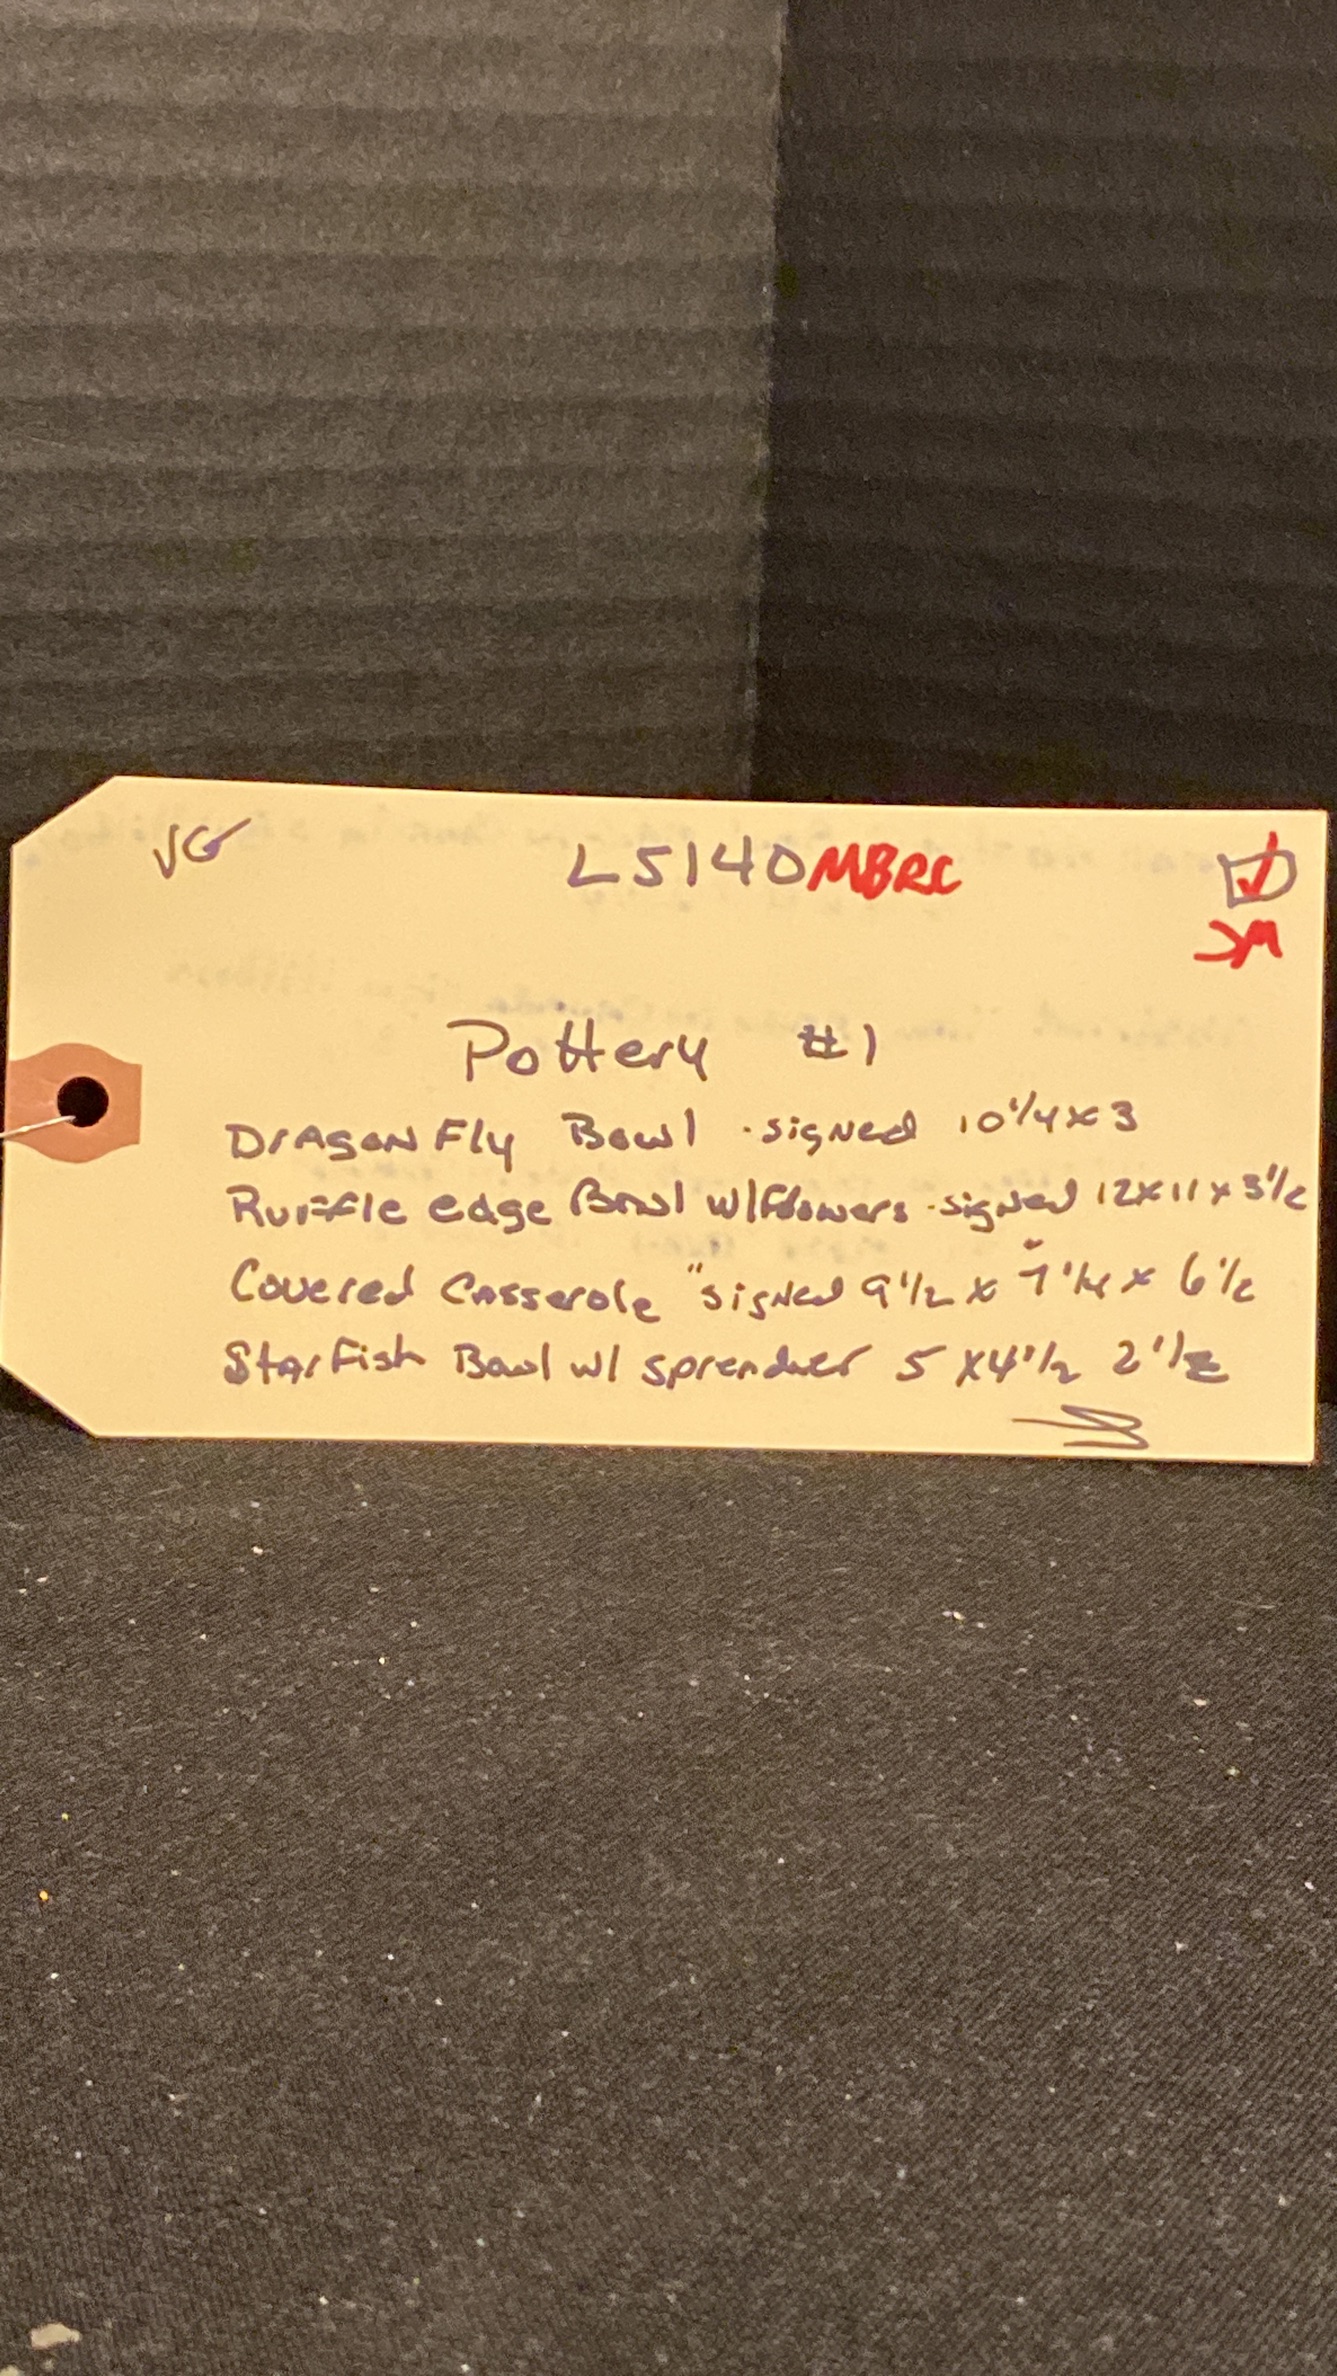 VG L5140MBRC
JM
Pottery #1
DragonFly Bowl - signed 10 1/4 x 3
Ruffle edge Bowl w/Flowers - signed 12 x 11 x 3 1/2
Covered Casserole "signed 9 1/2 x 7 1/4 x 6 1/2
StarFish Bowl w/ spreader 5 x 4 1/2 2 1/2